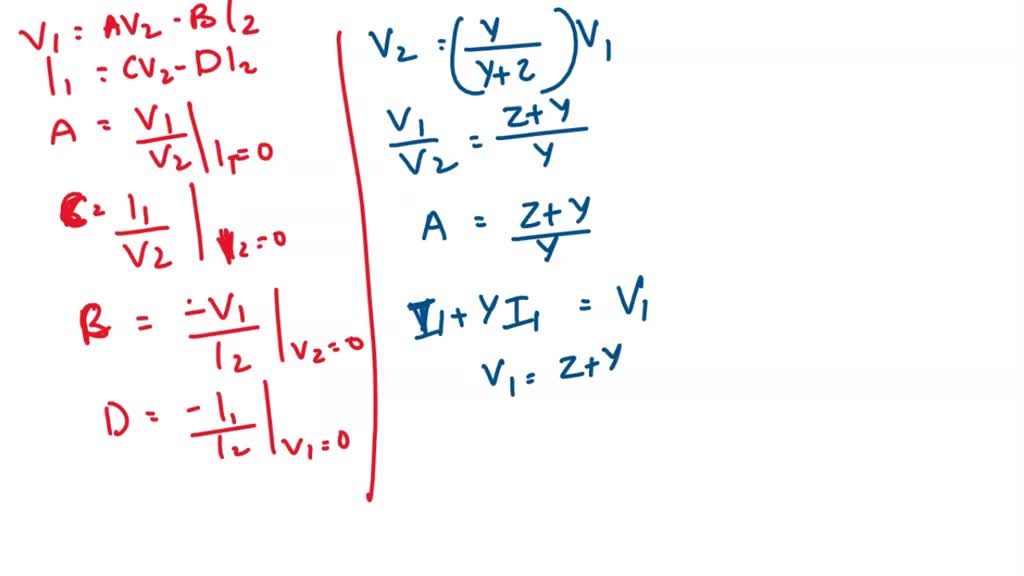 V₁ = AV₂ - BI₂
I₁ = CV₂ - DI₂
A = V₁/V₂ | I₁=0
C = I₁/V₂ | I₂=0
B = -V₁/I₂ | V₂=0
D = -I₁/I₂ | V₁=0
V₂ = (Y/(Y+Z)) V₁
V₁/V₂ = (Z+Y)/Y
A = (Z+Y)/Y
I₁ + YI₁ = V₁
V₁ = Z+Y